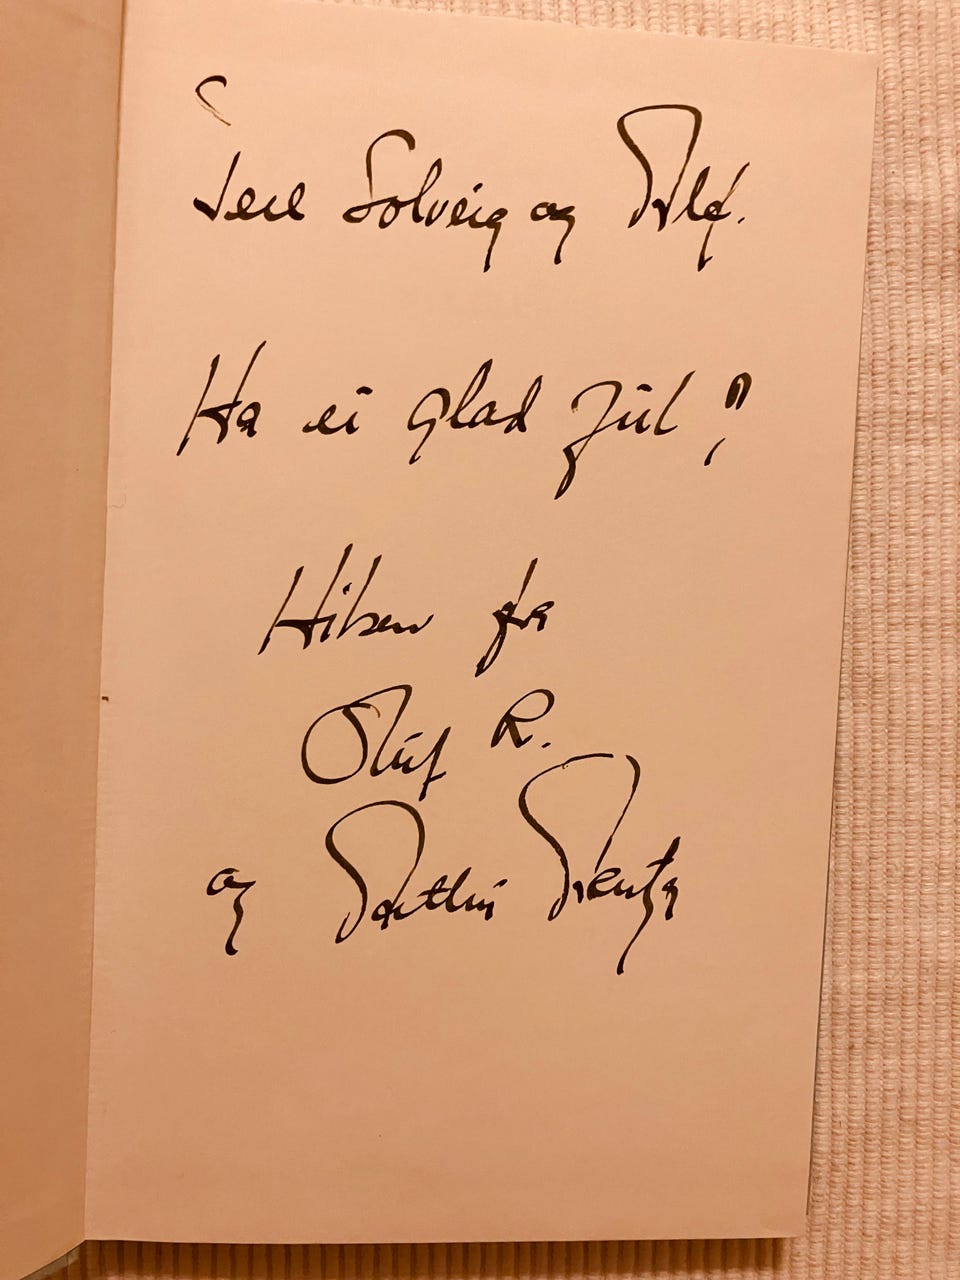 Solveig og Alf.
Ha ei glad jul!
Hilsen fra
Oluf R.
og